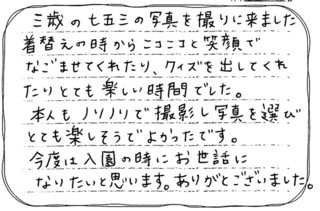 三歳の七五三の写真を撮りに来ました
着替えの時からニコニコと笑顔で
なごませてくれたり、クイズを出してくれ
たりとても楽しい時間でした。
本人もノリノリで撮影し写真を選び
とても楽しそうでよかったです。
今度は入園の時にお世話に
なりたいと思います。ありがとございました。